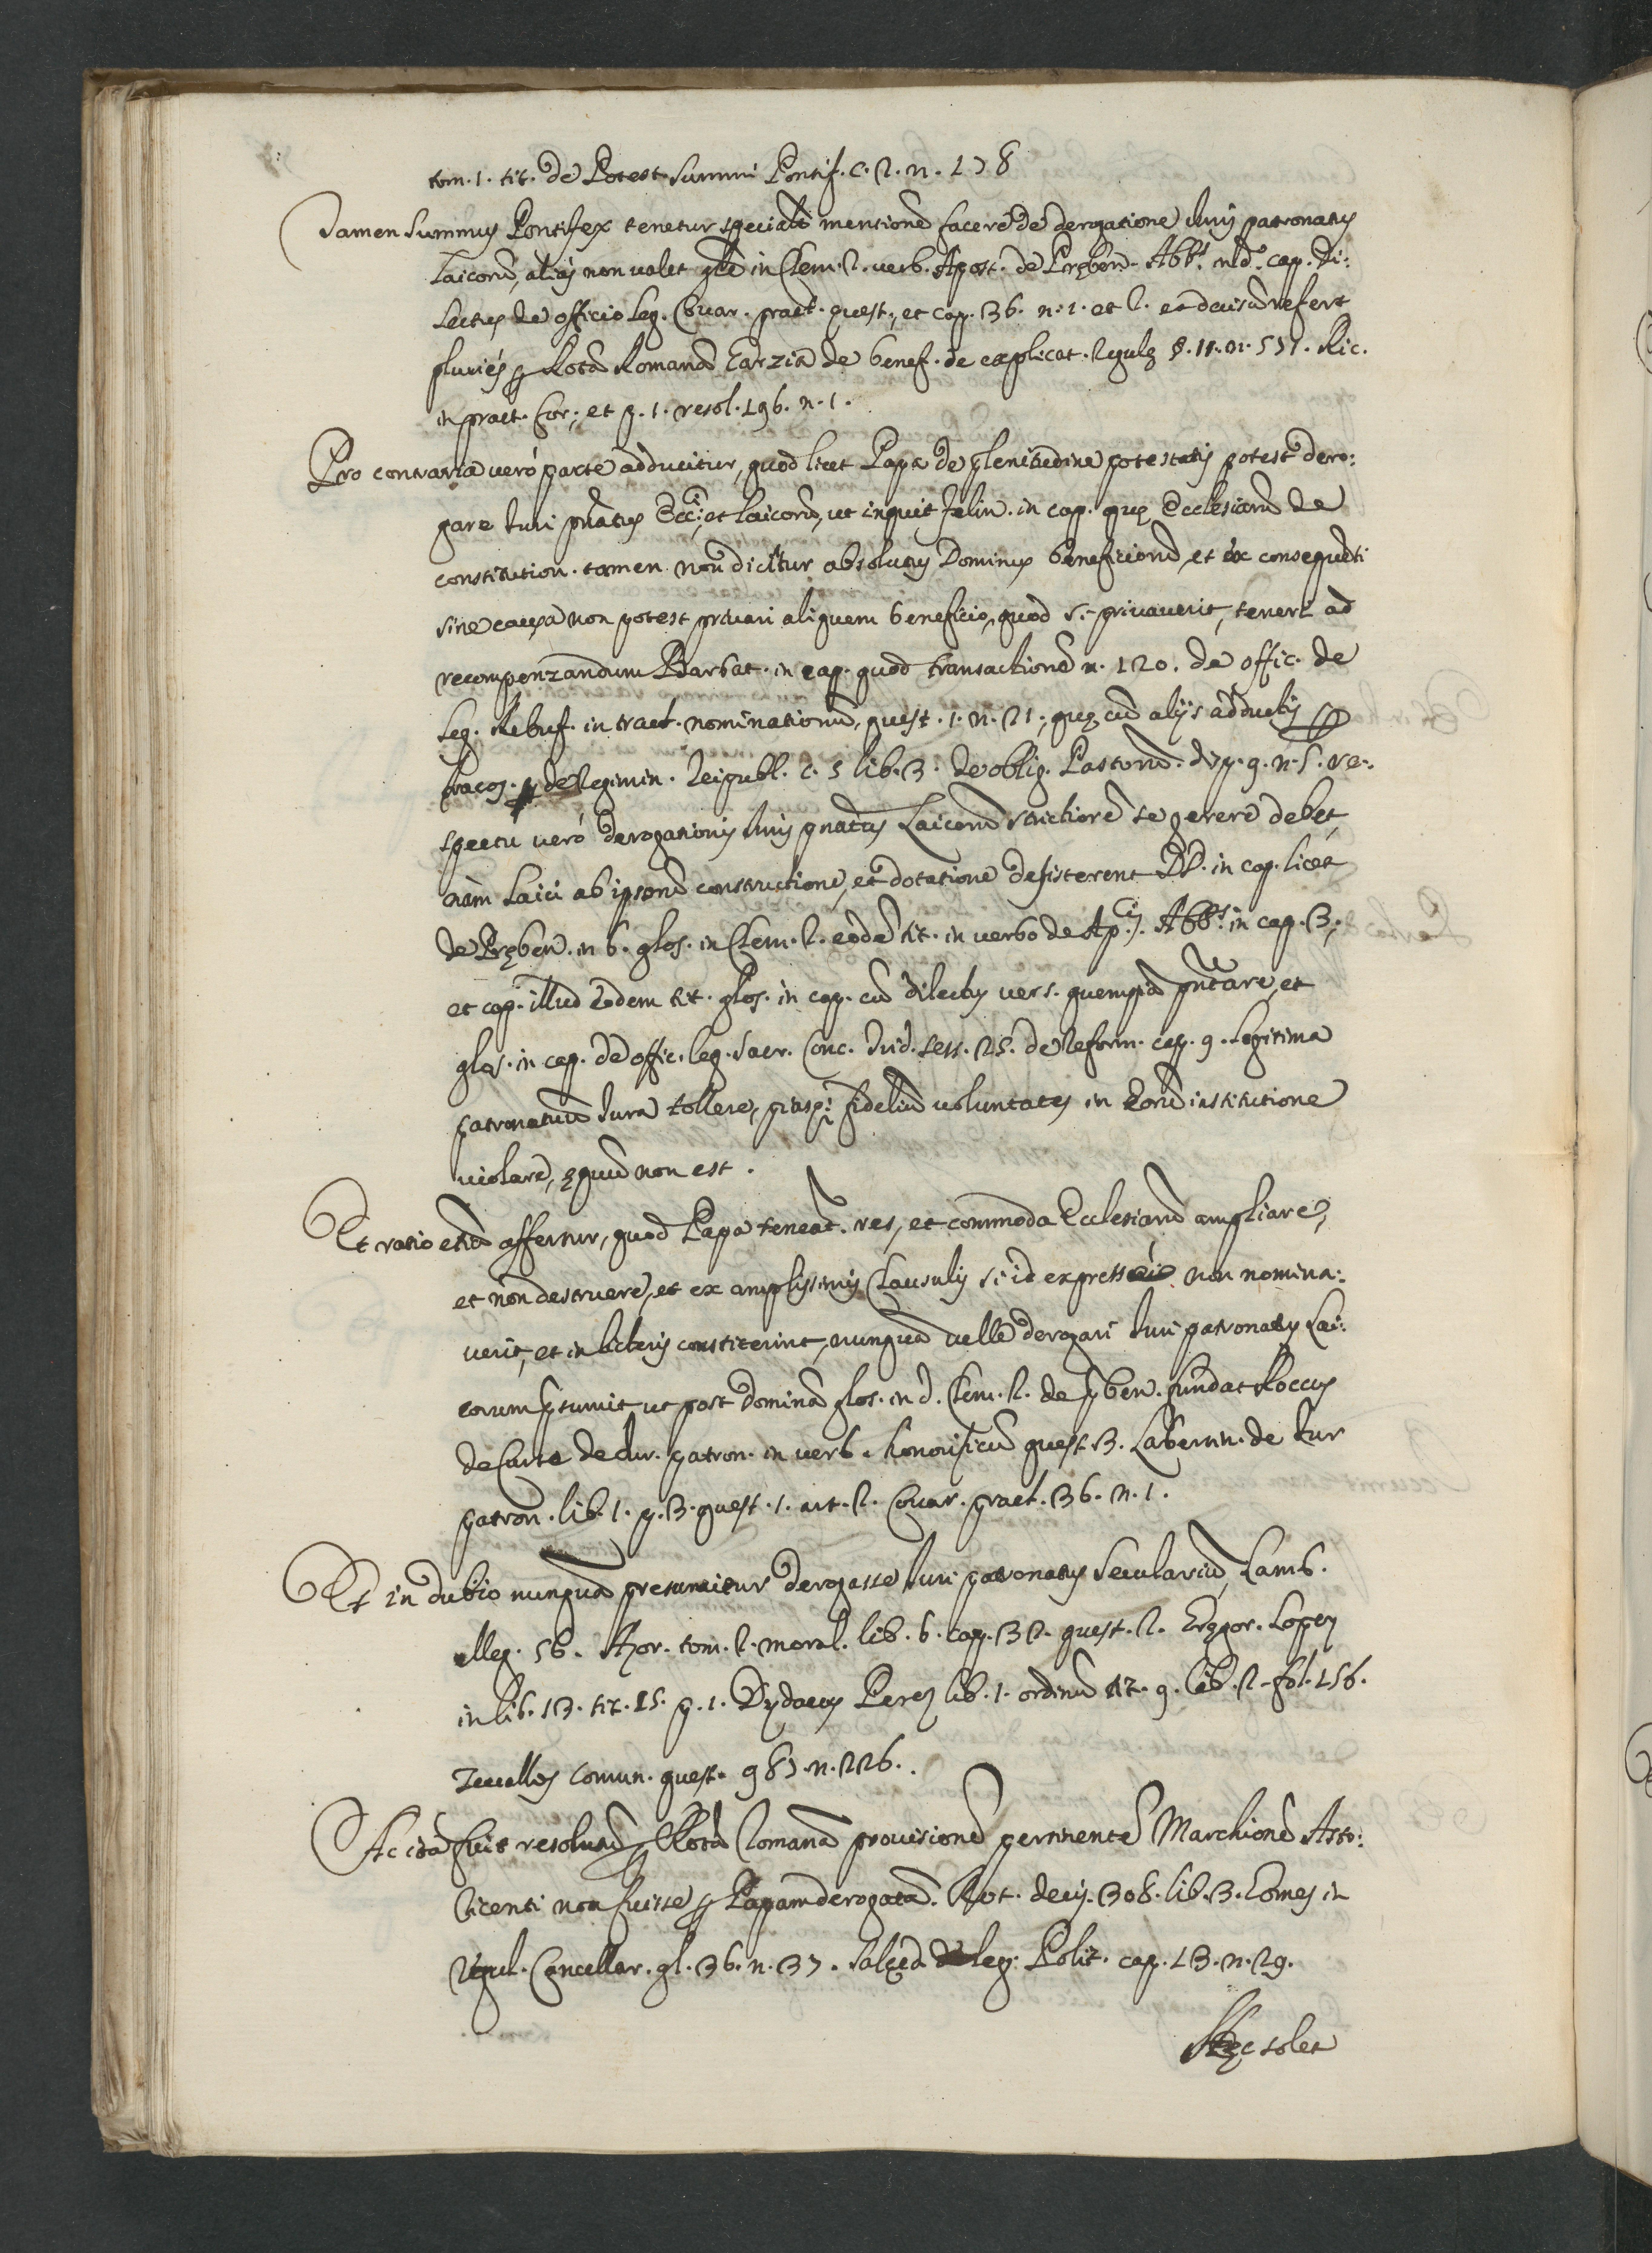 tom. 1. tit. de Potest. Summi Pontif. c. 2. n. 178
Tamen Summus Pontifex tenetur specialē mentionē facere de derogatione Iuris patronatus
Laicorū, alias non valet glē in Clem. 2. verb. Apost. de Pręben. Abb.s nd. cap. di:
lectus de officio leg. Couar. pract. quest., et cap. 36. n. 1. et 2. et decisū refert
pluries ꝑ Rotā Romanā Garzia de benef. de explicat. Regulę 8. 11. n. 571. Ric.
in pract. for., et p. 1. resol. 196. n. 1.
Pro contraria verò parte adducitur, quod licet Papa de plenitudine potestatis potest dero:
gare Iuri pn̄atus Ecc.ci, et laicorū, ut inquit Felin. in cap. quę Ecclesiarū de
constitution. tamen non dicitur absolutus Dominus beneficiorū, et ex consequēti
sine causa non potest priuari aliquem beneficio, quod si priuauerit, teneri ad
recompenzandum Barbat. in cap. quod transactionē n. 120. de offic. de
leg. Rebuf. in tract. nominationū, quest. 1. n. 21., quę cū alijs adductis ꝑ
fracos. de Regimin. Reipubl. c. 5 lib. 3. de oblig. Pastorū. disp. 9. n. 5. re:
spectu verò derogationis Iuris pn̄atus Laicorū strictiorē se gerere debet,
nàm Laici ab ipsorū constructione, et dotatione desisterent DD. in cap. licet
de Pręben. in 6. glos. in Clem. 2. eodē tit. in verbo de Ap.cis. Abb.s in cap. 3.,
et cap. illud eodem tit. glos. in cap. cū dilectus vers. quempiā pn̄tare, et
glos. in cap. de offic. leg. Sacr. Conc. Trid. sess. 25. de Reform. cap. 9. Legitima
patronatuū Iura tollere, piasq: fideliū voluntates in eorū institutione
violare, ęquū non est.
Et ratio etiā affertur, quod Papa teneat. res, et commoda Ecclesiarū ampliare,
et non destruere, et ex amplissimis Clausulis si id expressè non nomina:
verit, et in literis constiterint, nunquā velle derogari Iuri patronatus Lai:
corum pręsumit, ut post Dominā glos. in d. Clem. 2. de pręben. fundat Roccus
de Curte de Iur. patron. in verb. honorificū quest. 3. Labertin. de Iur
patron. lib. 1. p. 3. quest. 1. art. 2. Couar. pract. 36. n. 1.
Et in dubio nunquā presumitur derogasse Iuri patronatus Seculariū, Lamb.
alleg. 56. Azor. tom. 2. moral. lib. 6. cap. 32. quest. 2. Gregor. Lopez
in lib. 13. tit. 15. p. 1. Dydacus Perez lib. 1. ordinū tit. 9. lib. 2. fol. 156.
Zeuallos Comun. quest. 987. n. 226.
Ac ita fuit resolutū ꝑ Rotā Romanā prouisionē pertinentē Marchionē Asto:
ricenti non fuisse ꝑ Papam derogatā. Rot. decis. 308. lib. 3. Gomes in
Regul. Cancellar. gl. 36. n. 37. Salzed. de leg. Polit. cap. 13. n. 29.
Hęc solet